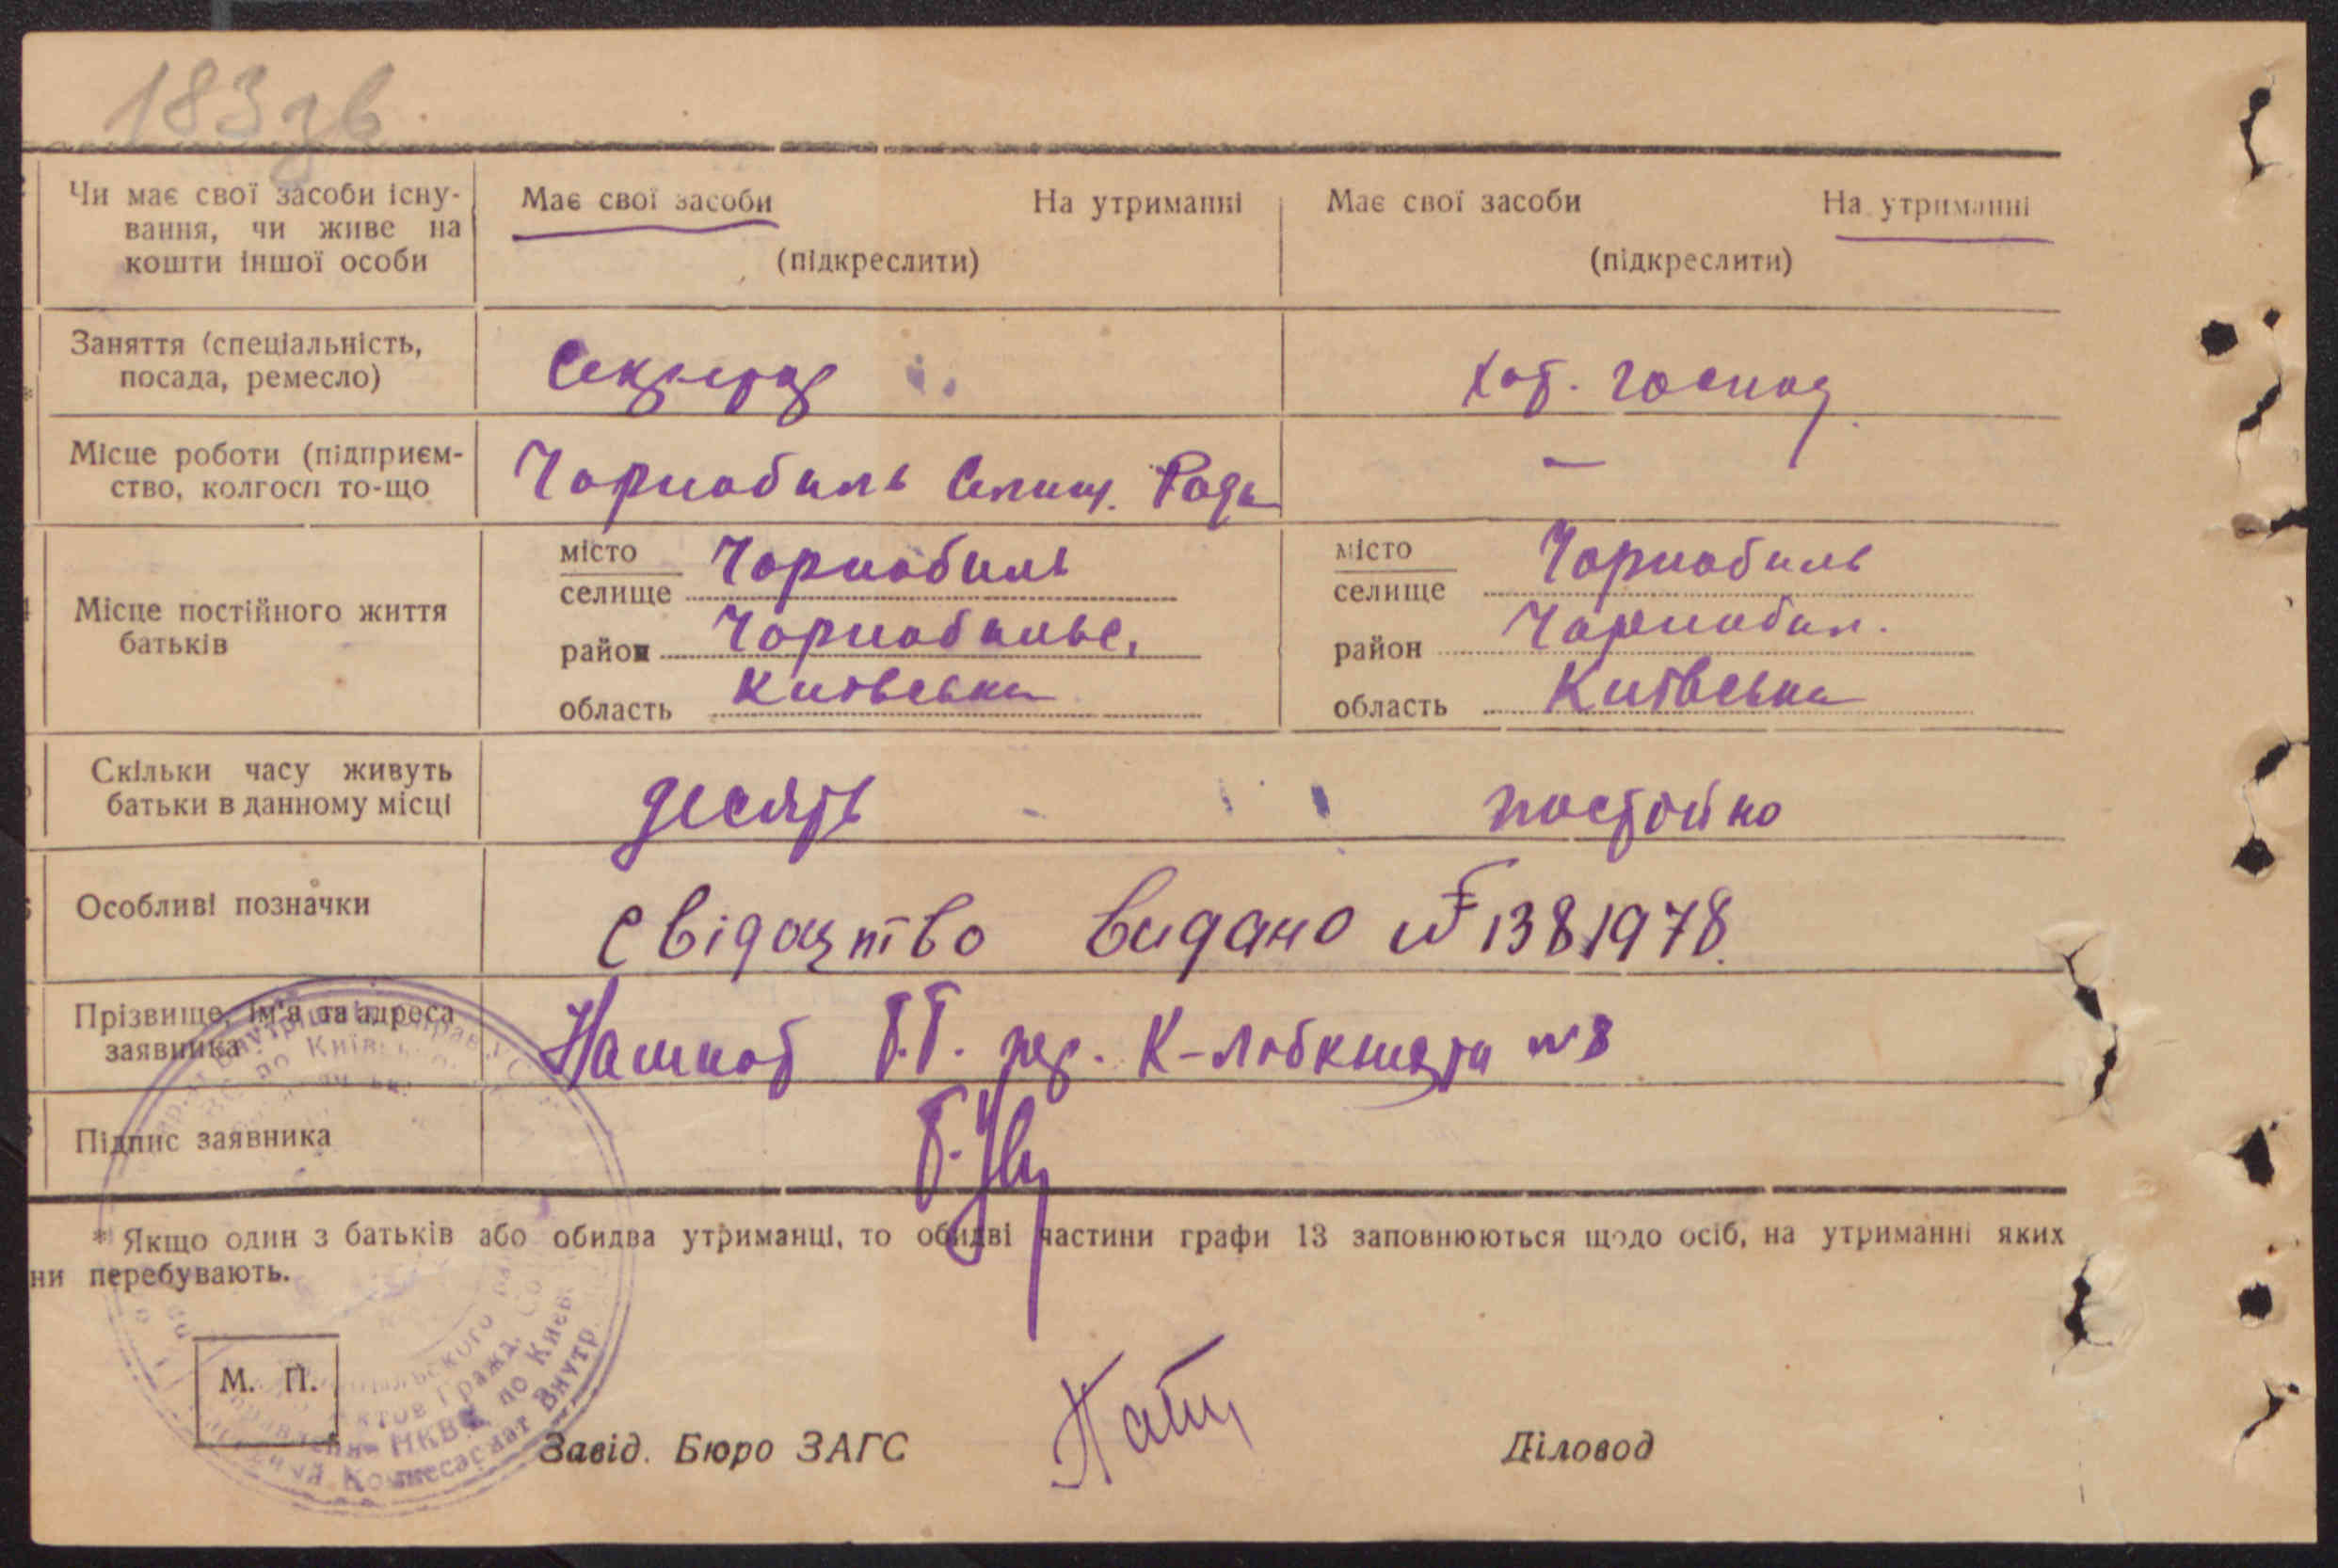 183 зв.
Чи має свої засоби існу-
вання, чи живе на
кошти іншої особи
Має свої засоби На утриманні
(підкреслити)
Має свої засоби На утриманні
(підкреслити)
Заняття (спеціальність,
посада, ремесло)
Секретар
хат. господ.
Місце роботи (підприєм-
ство, колгосп то-що
Чорнобиль Селищ. Рада
—
Місце постійного життя
батьків
місто
селище Чорнобиль
район Чорнобильс.
область Київська
місто
селище Чорнобиль
район Чорнобил.
область Київська
Скільки часу живуть
батьки в данному місці
десять
постойно
Особливі позначки
Свідоцтво видано № 1381978.
Прізвище, ім'я та адреса
заявника
Б. К-Лібкнехта № 8
Підпис заявника
* Якщо один з батьків або обидва утриманці, то обидві частини графи 13 заповнюються щодо осіб, на утриманні яких
ни перебувають.
М. П.
Завід. Бюро ЗАГС
Діловод